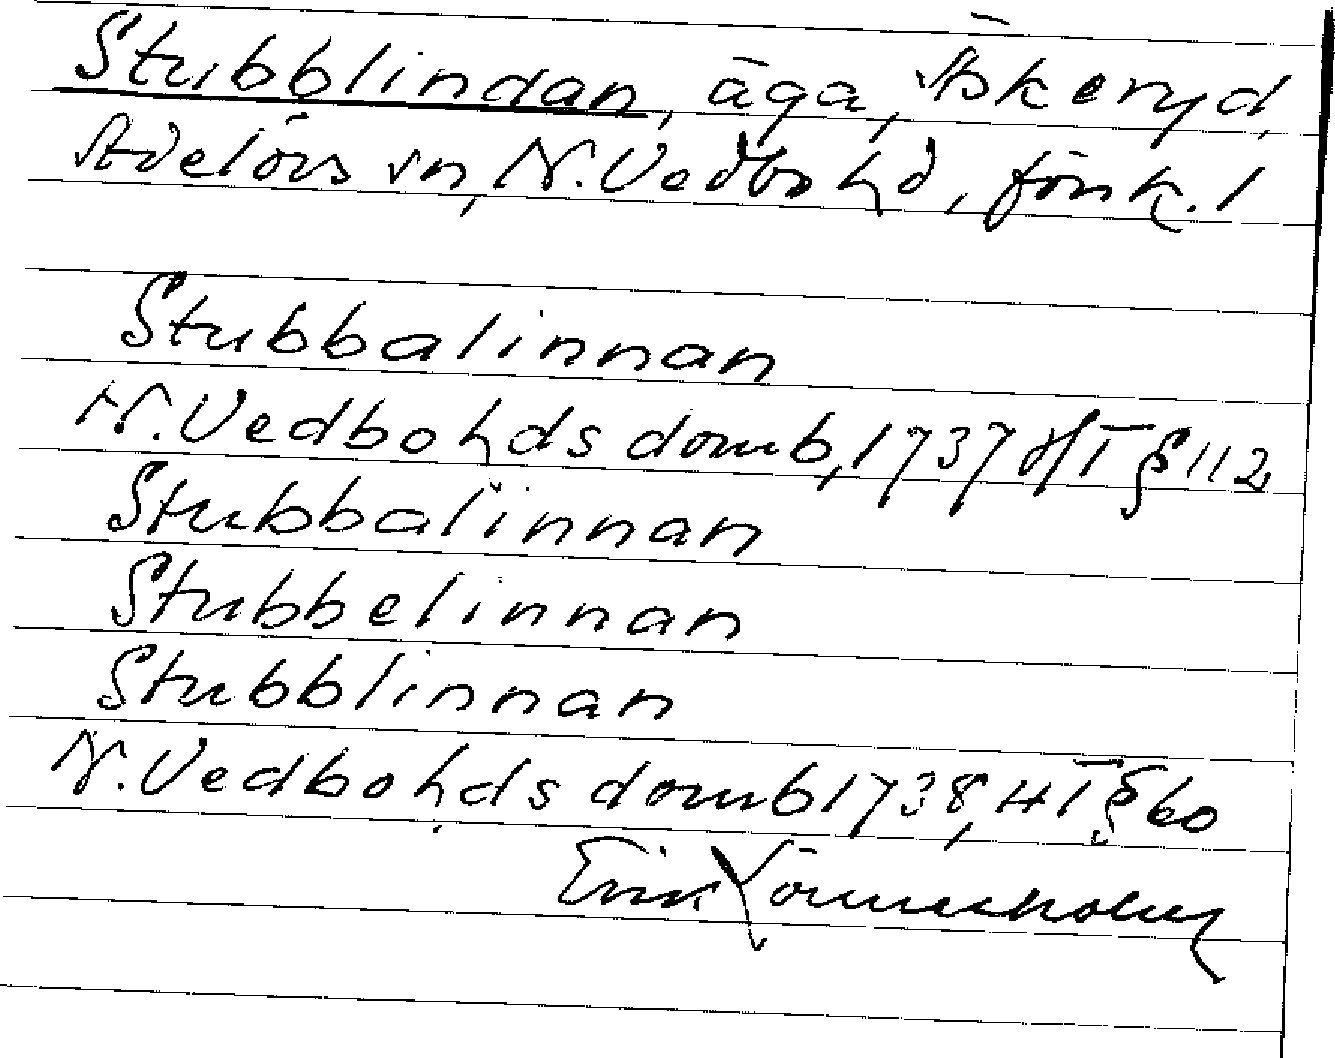 Stubblindan, äga, Askeryd,
Adelövs sn, N. Vedbo hd, Jönk. l
Stubbalinnan
N. Vedbo hds domb, 1737 HT § 112
Stubbalinnan
Stubbelinnan
Stubblinnan
N. Vedbo hds domb 1738, HT § 60
Erik